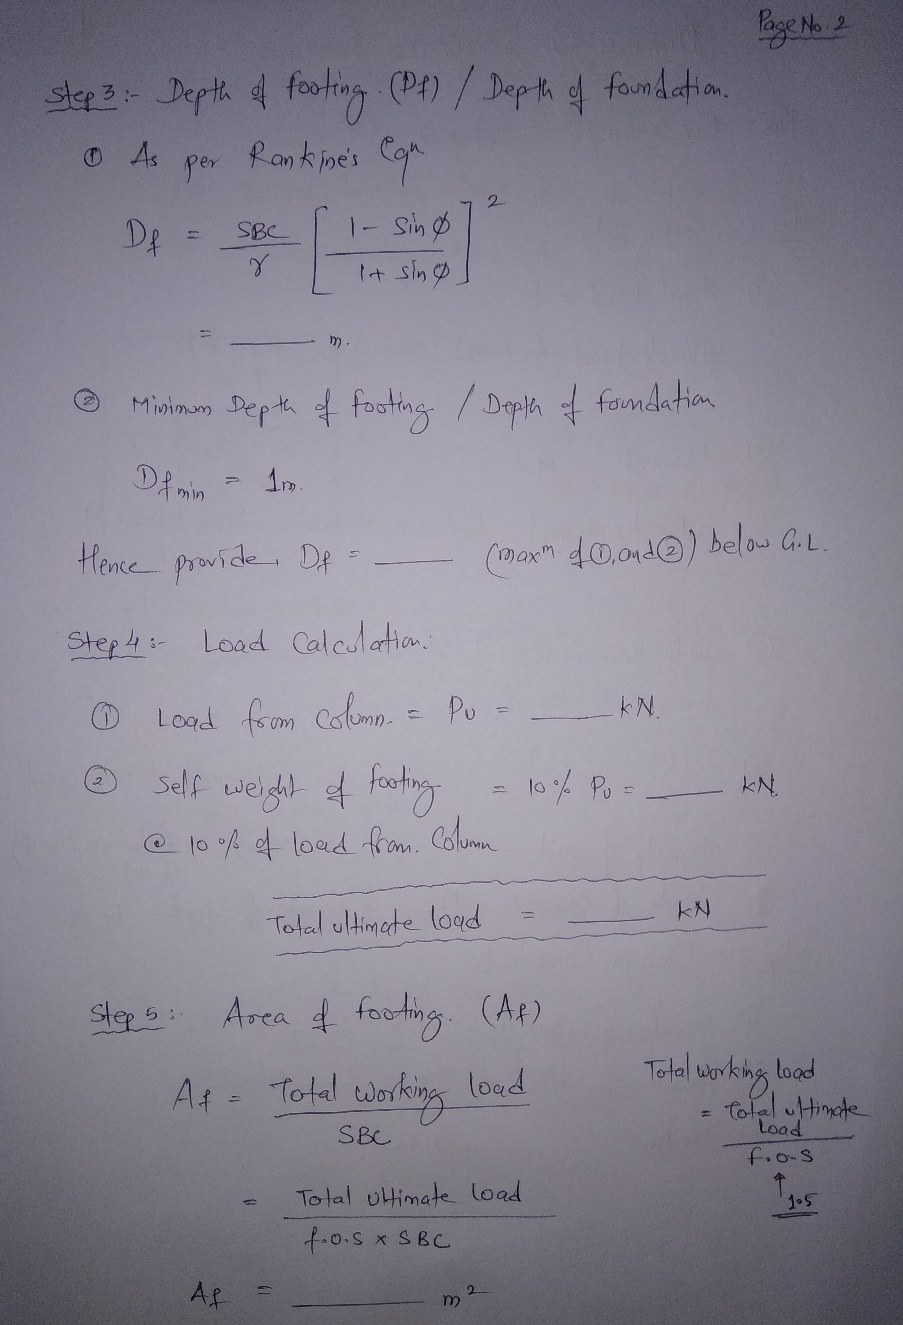 Page No. 2
Step 3 :- Depth of footing. (Df) / Depth of foundation.
① As per Rankine's Eqn
Df = SBC / γ [ 1 - Sin ø / 1 + Sin ø ]²
= ____ m.
② Minimum Depth of footing / Depth of foundation
Df min = 1m.
Hence provide, Df = ____ (maxm of ①, and ②) below G.L.
Step 4 :- Load Calculation.
① Load from Column = Pu = ____ kN.
② Self weight of footing = 10 % Pu = ____ kN.
@ 10 % of load from. Column
Total ultimate load = ____ kN
Step 5 :- Area of footing. (Af)
Af = Total working load / SBC
Total working load
= Total ultimate load / f.o.s
↑ 1.5
= Total ultimate load / f.o.s x SBC
Af = ____ m²